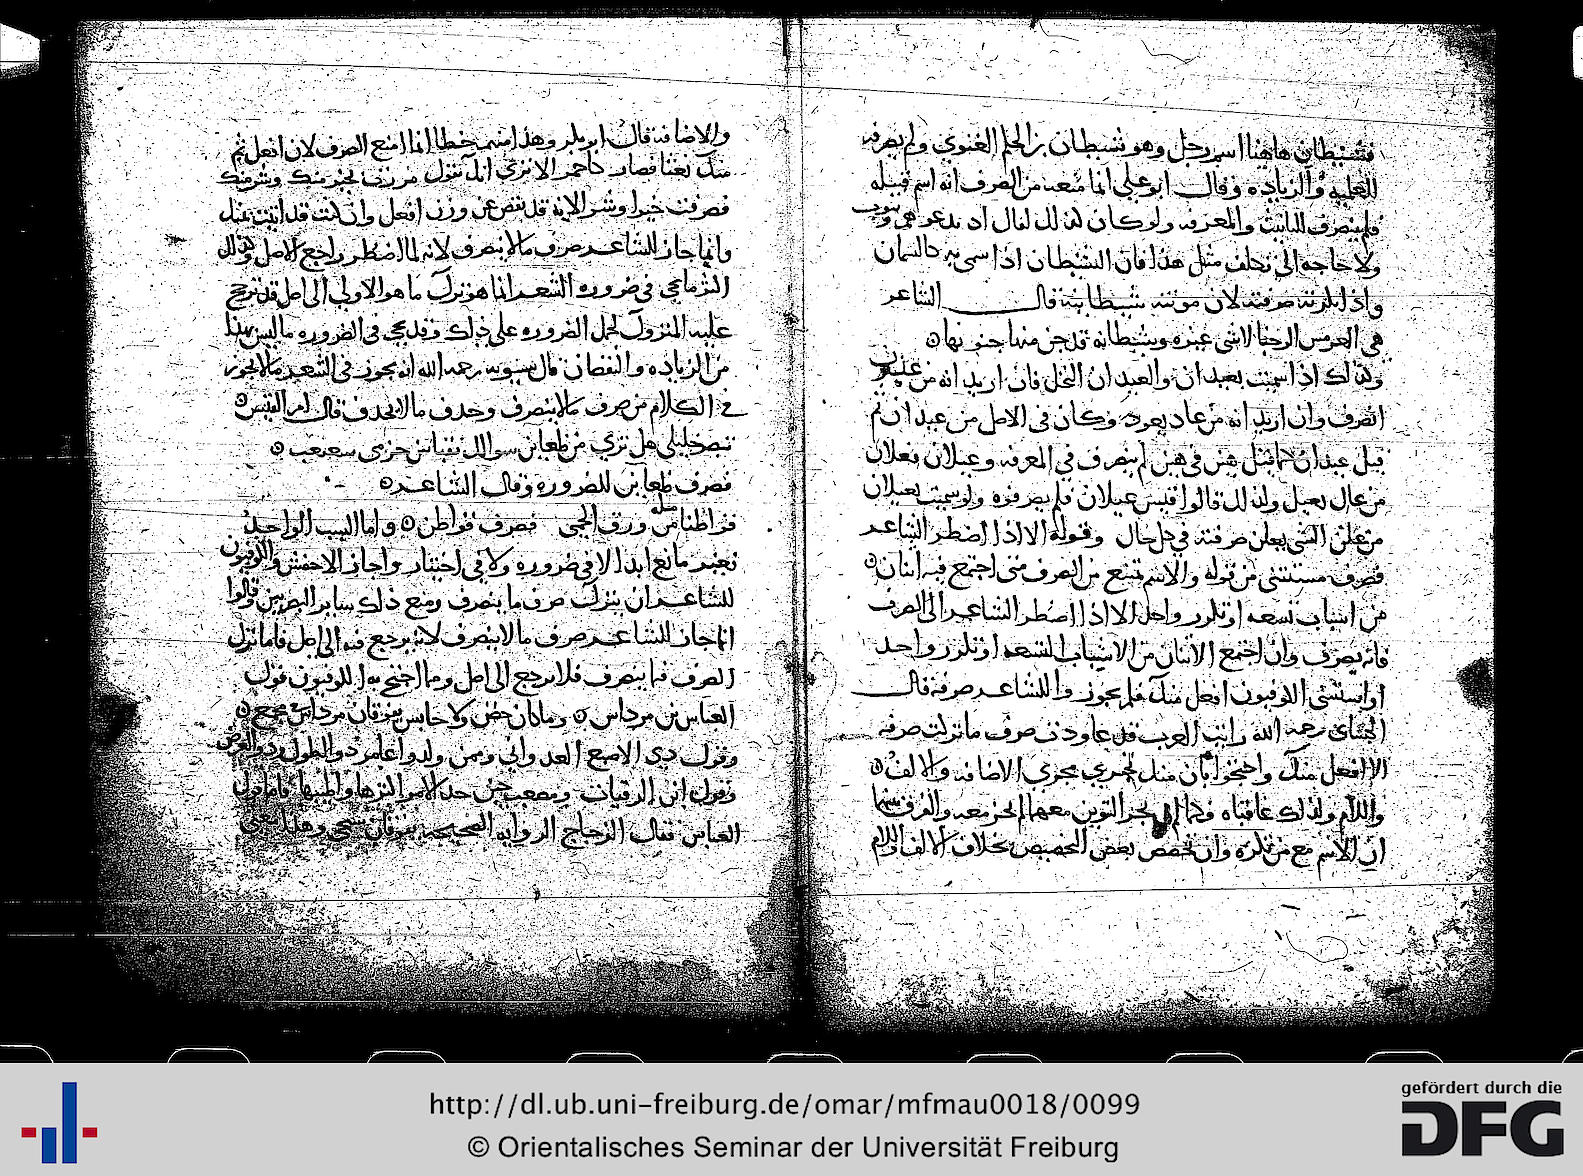 فشيطان هاهنا اسم رجل وهو شيطان بن الحكم الغنوي ولم يصرفه
للعلميه والزياده وقال ابو علي انما منعه من الصرف انه اسم قبيله
فلم ينصرف للتانيث والمعرفه ولو كان كذلك لقال اذ يدعوهم
ولا حاجه الى تكلف مثل هذا فان الشيطان اذا سمى به كالسمان
واذا نكرته صرفته لان مونثه شيطانة قال الشاعر
هي
وكذلك اذا سميت بعيدان والعيدان النخل فان اريد انه من
انصرف وان اريد انه من عاد يعود وكان في الاصل من عيدان ثم
قيل عيدان كما قيل هين في هين لم ينصرف في المعرفه وعيلان فعلان
من عال يعيل وكذلك قالوا قيس عيلان فلم يصرفوه ولو سميت بعيلان
من علن الشي يعلن صرفته في كل حال وقوله الا اذا اضطر الشاعر
فصرف مستثنى من قوله والاسم تمنع من الصرف متى اجتمع فيه اثنان
من اسباب تسعه او تكرر واحد الا اذا اضطر الشاعر الى الصرف
فانه يصرف وان اجتمع الاثنان من الاسباب التسعه او تكرر واحد
واستثنى الكوفيون افعل منك فلم يجوزوا للشاعر صرفه قال
رحمه الله رايت العرب قد عاودت صرف ما تركت صرفه
الا افعل منك واحتجوا بان منك تجري مجرى الاضافه والالف
واللام ولذلك عاقباه فكما لم يجز التنوين معهما لم يجز معه والفرق بينهما
ان الاسم مع من نكره وان تخصص بعض التخصيص بخلاف الالف واللام
والاضافه قال ابو بكر وهذا منهم خطا انما امنع الصرف لان افعل تم
منك نعتا فصار كاحمر الا ترى انك تقول مررت بخير منك وشر منك
فصرفت خيرا وشرا لانه قد نقص عن وزن افعل وان كنت قد اتيت بمنك
وانما جاز للشاعر صرف ما لا ينصرف لانه لما اضطر راجع الاصل وكذلك
اكثر ما يجي في ضروره الشعر انما هو ترك ما هو الاولى الى اصل قد ترجح
عليه المتروك لحمل الضروره على ذلك وقد يجي في الضروره ما ليس بهذا
من الزياده والنقصان قال سيبويه رحمه الله انه يجوز في الشعر ما لا يجوز
في الكلام من صرف ما لا ينصرف وحذف ما لا يحذف قال امرؤ القيس
تبصر خليلي هل ترى من ظعاين سوالك نقبا بين حزمى شعبعب
فصرف ظعاين للضروره وقال الشاعر
قواطنا مكه من ورق الحمى فصرف قواطن واما السبب الواحد
بغير مانع ابدا لا في ضروره ولا في اختيار واجاز الاخفش والكوفيون
للشاعر ان يترك صرف ما ينصرف ومنع ذلك ساير البصريين وقالوا
انما جاز للشاعر صرف ما لا ينصرف لانه يرجع فيه الى اصل فاما ترك
الصرف فيما ينصرف فلا يرجع الى اصل ومما احتج به الكوفيون قول
العباس بن مرداس وما كان حصن ولا حابس يفوقان مرداس في مجمع
وقول ذي الاصبع العدواني وممن ولدوا عامر ذو الطول وذو العرض
وقول ابن الرقيات ومصعب حين جد الامر اكثرها واطيبها فاما قول
العباس فقال الزجاج الروايه الصحيحه يفوقان شيخي وهذا
http://dl.ub.uni-freiburg.de/omar/mfmau0018/0099
© Orientalisches Seminar der Universität Freiburg
gefördert durch die
DFG